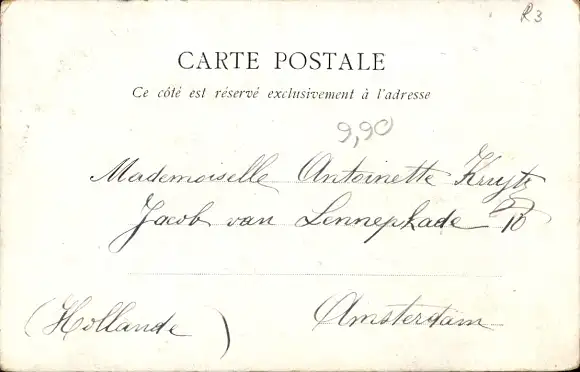 R3
CARTE POSTALE
Ce côté est réservé exclusivement à l'adresse
9,90
Mademoiselle Antoinette
Jacob van Lennepkade
(Hollande) Amsterdam